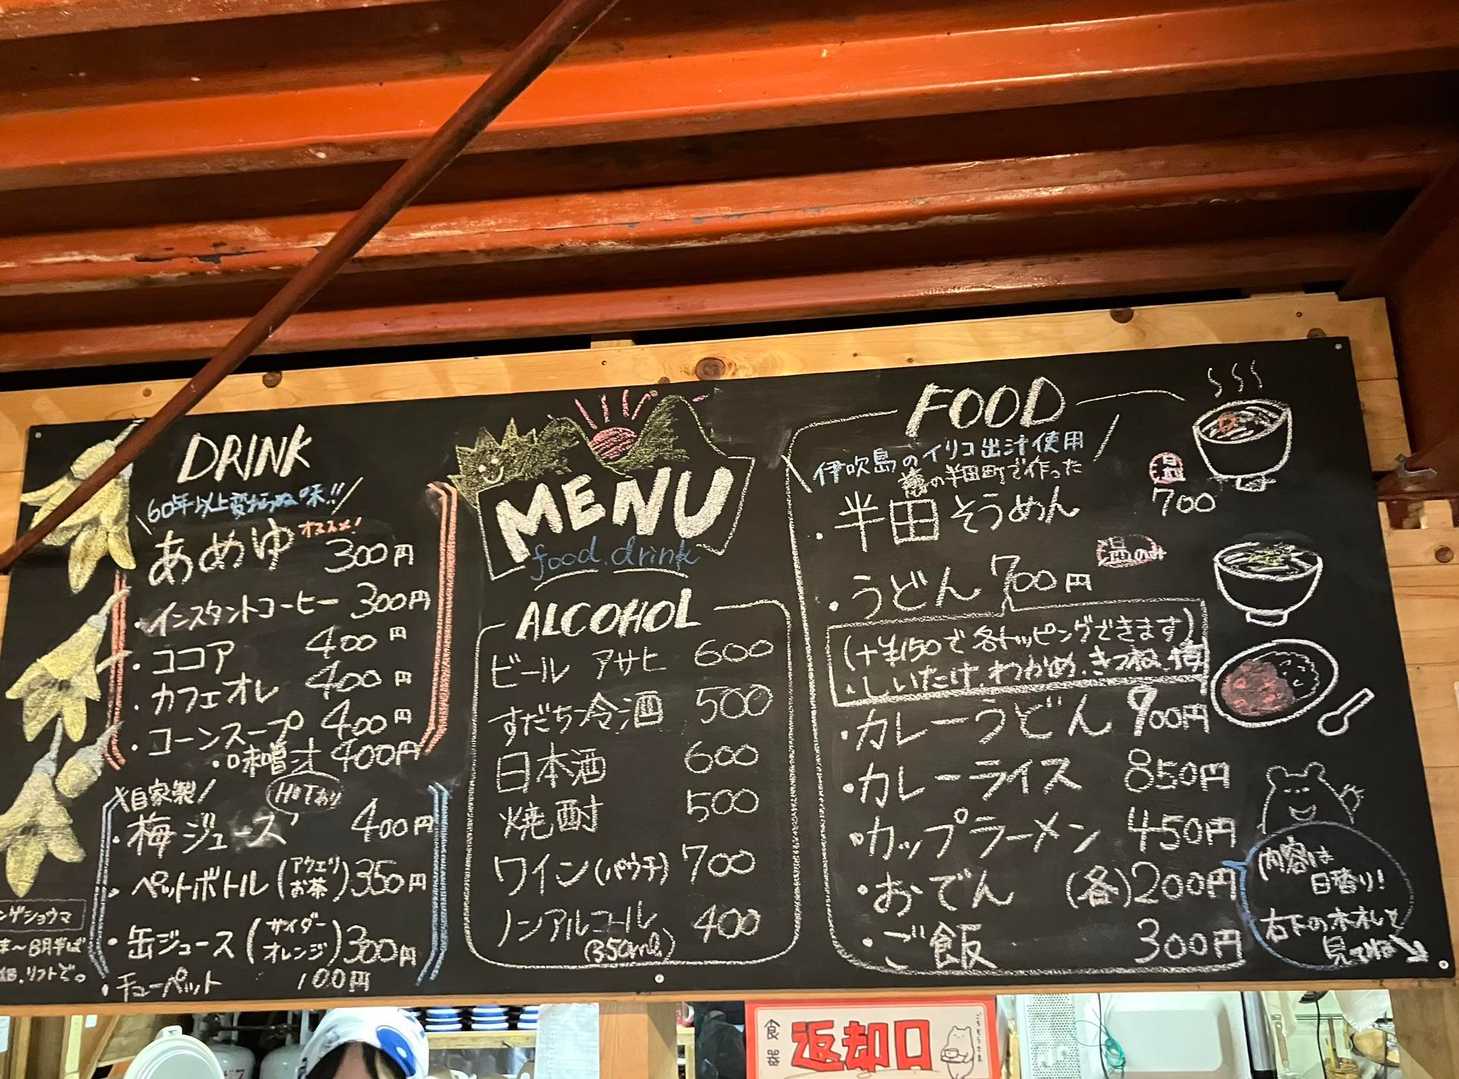 DRINK
60年以上変わらぬ味!!
あめゆ オススメ! 300円
・インスタントコーヒー 300円
・ココア 400円
・カフェオレ 400円
・コーンスープ 400円
・味噌汁 400円
自家製
HOTあり
・梅ジュース 400円
・ペットボトル (アクエリ お茶) 350円
・缶ジュース (サイダー オレンジ) 300円
・チューペット 100円
ンゲショウマ
末〜8月半ば
リフトで。
MENU
food.drink
ALCOHOL
ビール アサヒ 600
すだち冷酒 500
日本酒 600
焼酎 500
ワイン(パウチ) 700
ノンアルコール 400
(350ml)
FOOD
伊吹島のイリコ出汁使用
の半田町で作った
・半田そうめん 温 700
・うどん 700円 温のみ
(+¥150で各トッピングできます)
・しいたけ.わかめ.きつね.梅
・カレーうどん 900円
・カレーライス 850円
・カップラーメン 450円
・おでん (各)200円
・ご飯 300円
内容は
日替り!
右下の木札を
見てね
食器
返却口